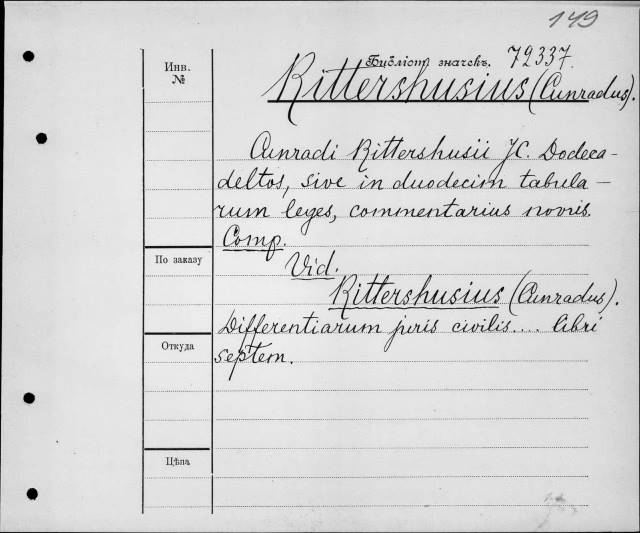 149
Инв.
№
Библіот. значекъ. 72337.
Rittershusius (Cunradus).
Cunradi Rittershusii JC. Dodeca-
deltos, sive in duodecim tabula-
rum leges, commentarius novus.
Comp.
По заказу
Vid.
Rittershusius (Cunradus).
Differentiarum juris civilis.... libri
Откуда
septem.
Цѣна